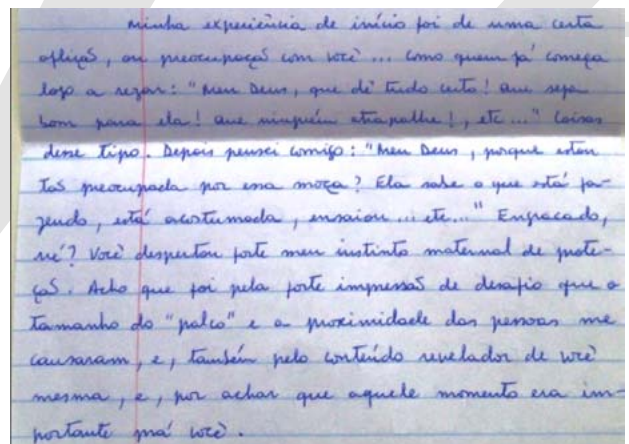 Minha experiência de início foi de uma certa
aflição, ou preocupação com você... como quem já começa
logo a rezar: "Meu Deus, que dê tudo certo! Que seja
bom para ela! Que ninguém atrapalhe!, etc..." Coisas
desse tipo. Depois pensei comigo: "Meu Deus, porque estou
tão preocupada por essa moça? Ela sabe o que está fa-
zendo, está acostumada, ensaiou... etc..." Engraçado,
né? Você despertou forte meu instinto maternal de prote-
ção. Acho que foi pela forte impressão de desafio que o
tamanho do "palco" e a proximidade das pessoas me
causaram, e, também pelo conteúdo revelador de você
mesma, e, por achar que aquele momento era im-
portante prá você.